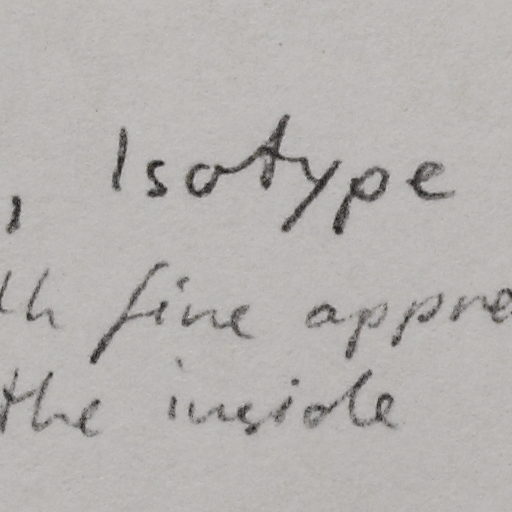 , Isotype
th fine appre
the inside